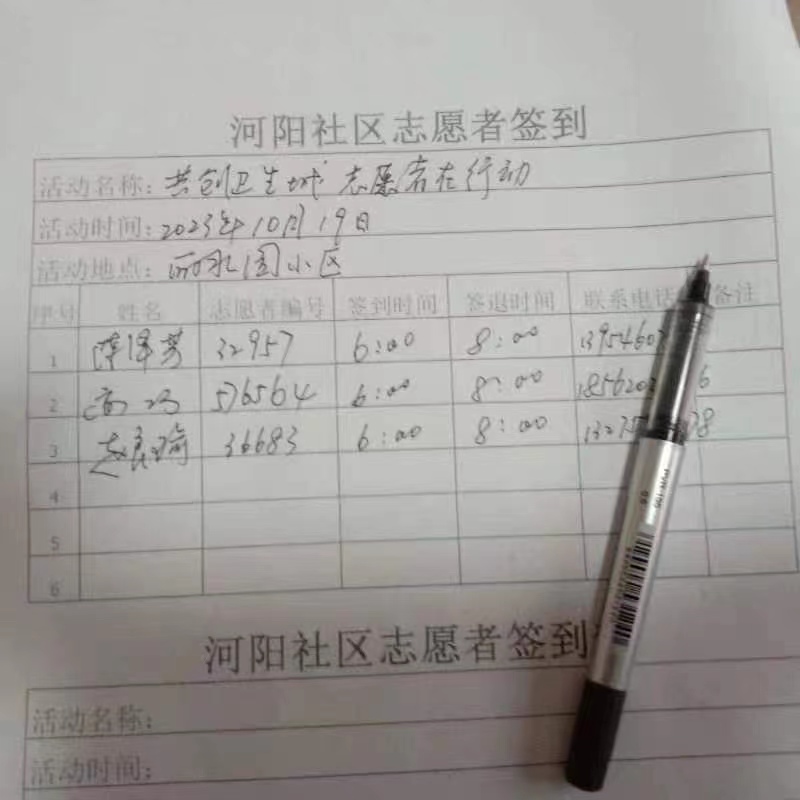 河阳社区志愿者签到
活动名称：共创卫生城 志愿者在行动
活动时间：2023年10月19日
活动地点：丽水园小区
序号 姓名 志愿者编号 签到时间 签退时间 联系电话 备注
1 32957 6:00 8:00 1395460
2 576564 6:00 8:00 185620 6
3 赵良瑜 36683 6:00 8:00 1327 38
4
5
6
河阳社区志愿者签到
活动名称：
活动时间：